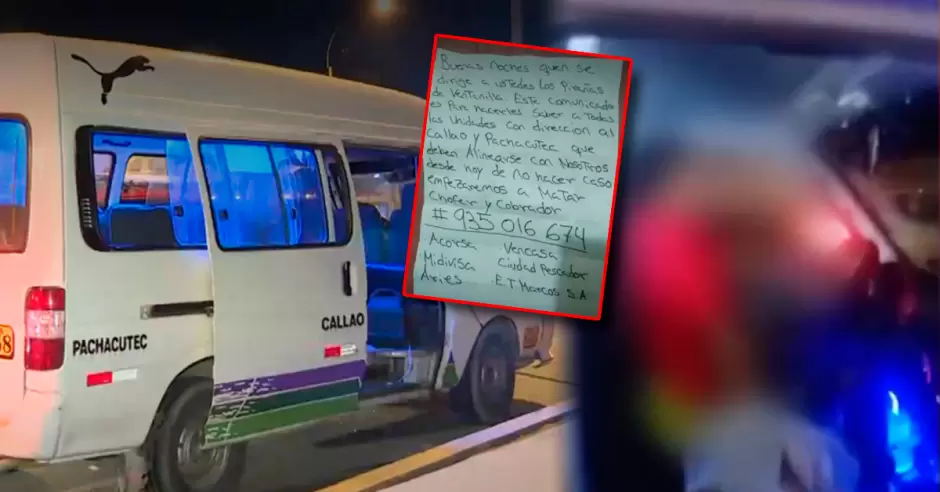 Buenas noches quien se
dirige a ustedes Los Pirañas
de Ventanilla. Este comunicado
es Para hacerles Saber a todas
las Unidades Con dirección al
Callao y Pachacutec que
deben Alinearse con Nosotros
desde hoy de no hacer caso
empezaremos a Matar
Chofer y Cobrador
# 935 016 674
Acorsa Vencasa
Midivisa Ciudad Pescador
Aries E.T Marcos S.A
PACHACUTEC
CALLAO